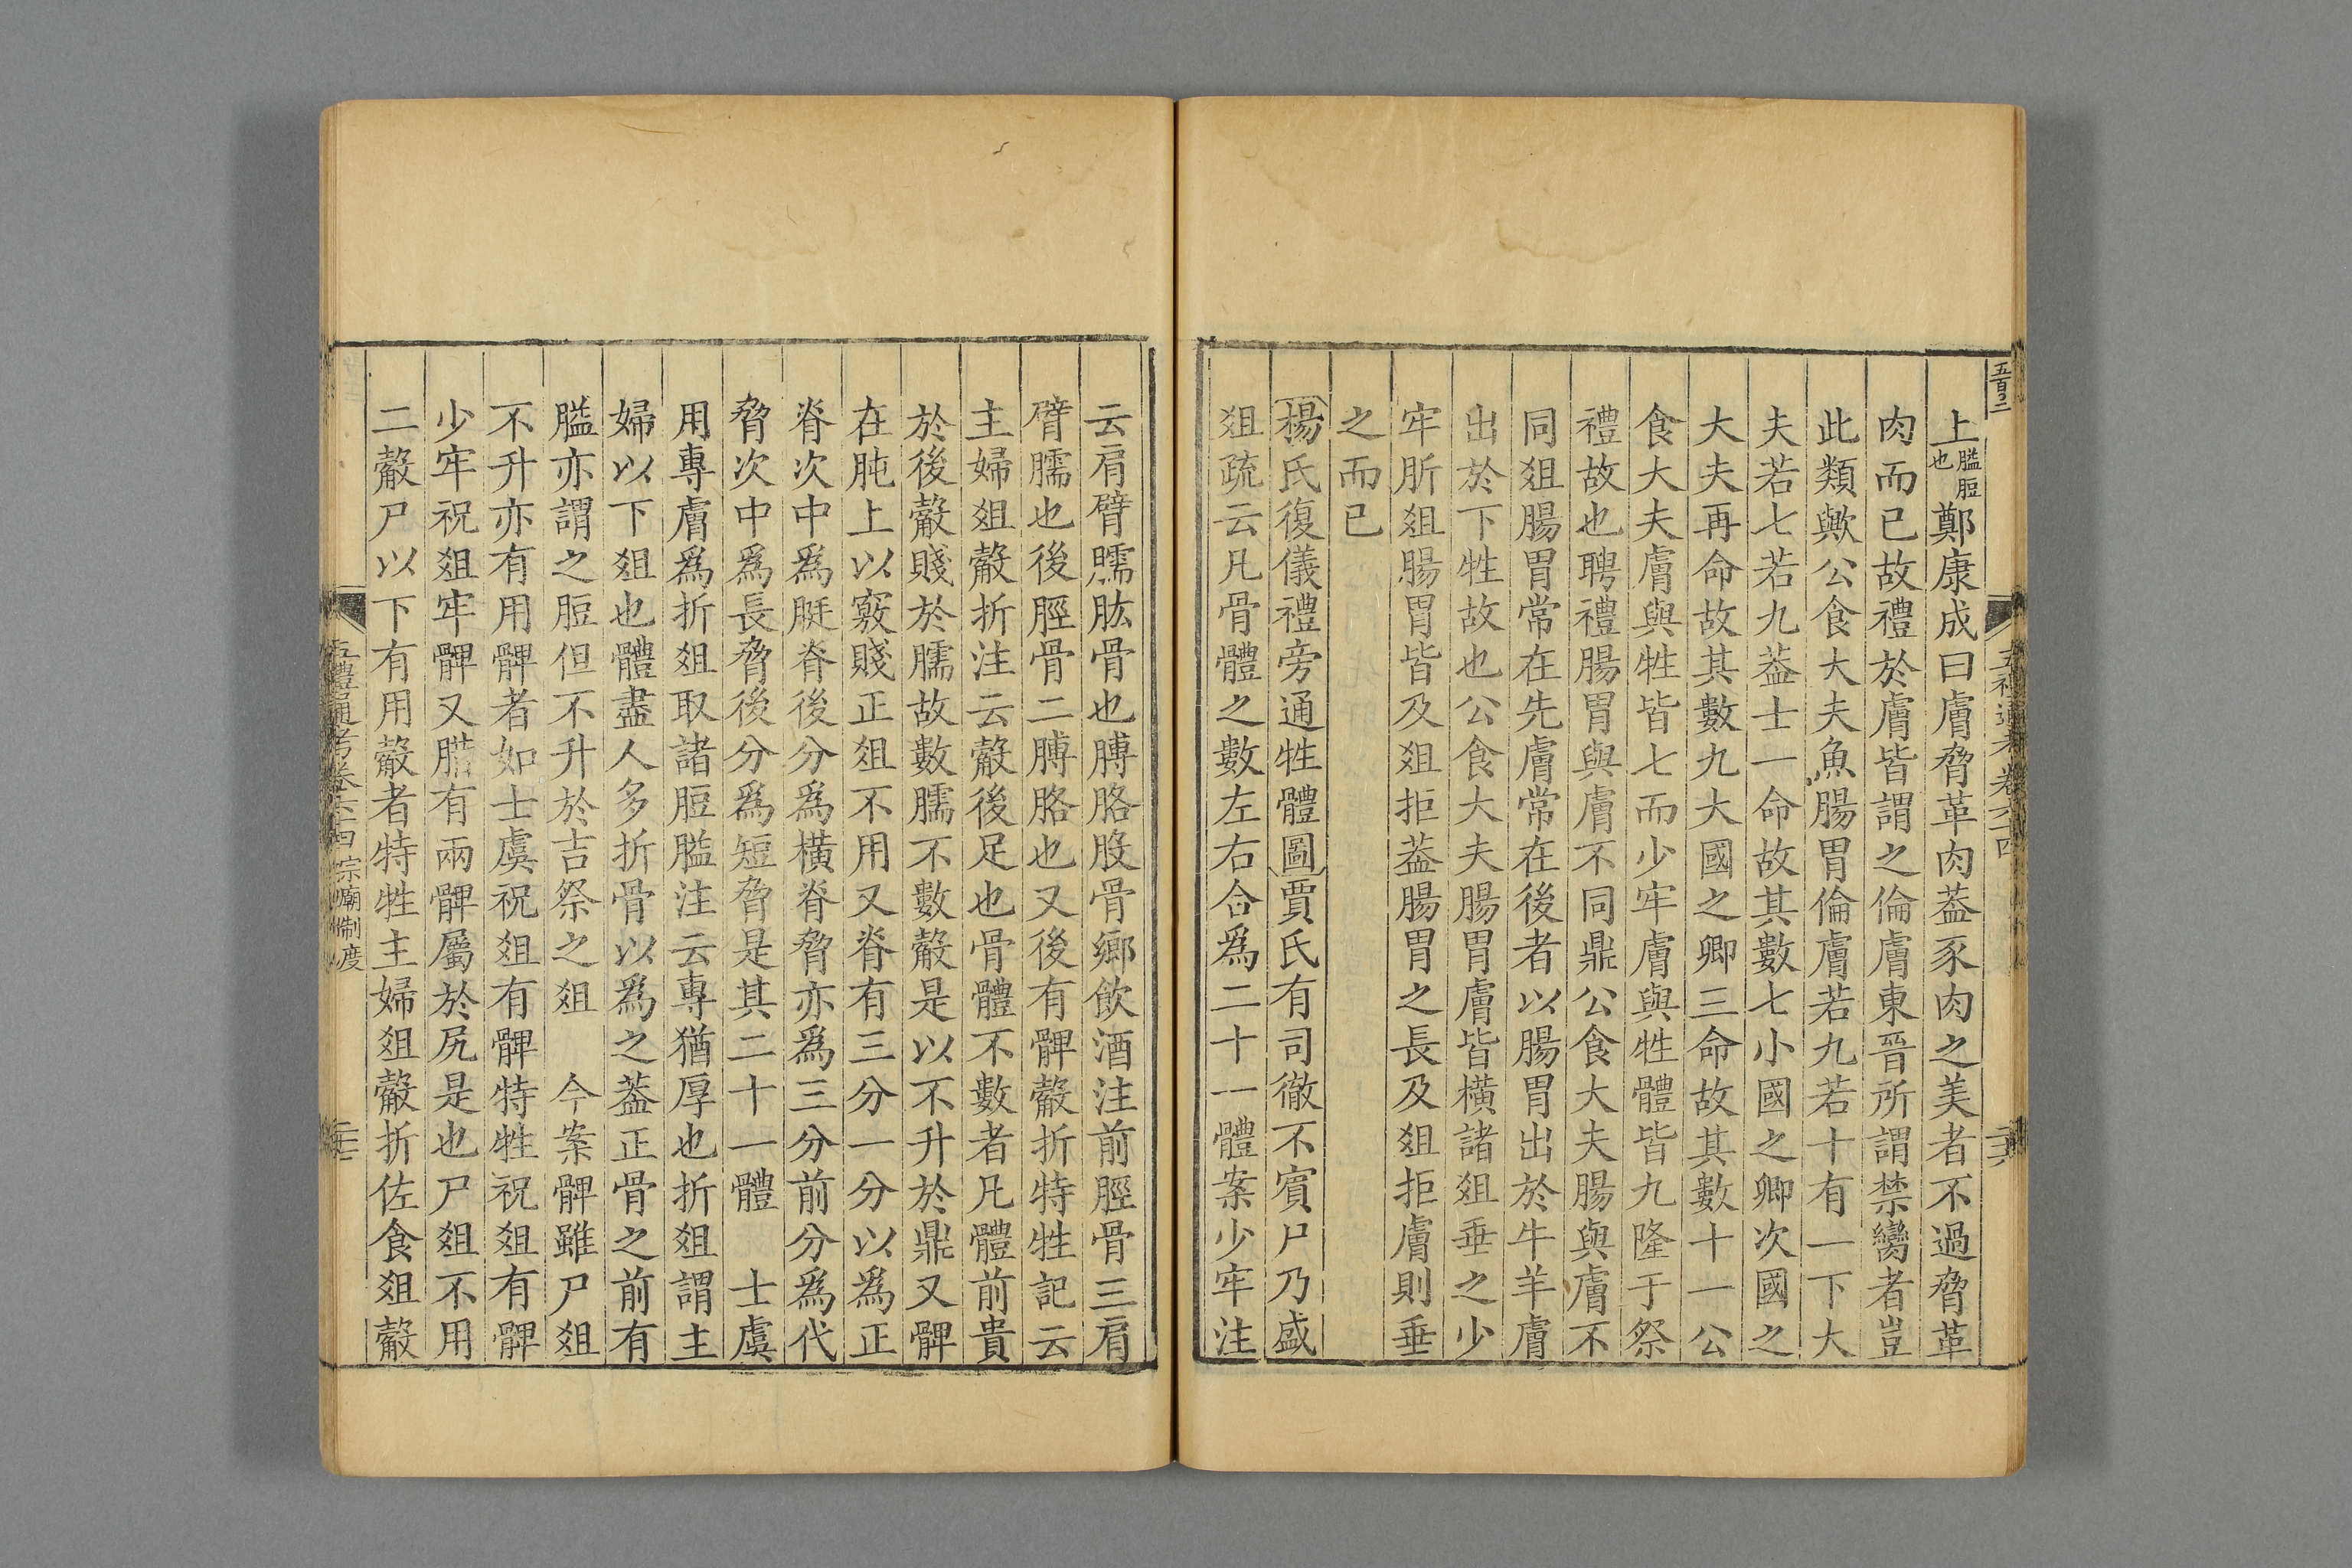 上膉脰也鄭康成曰膚脅革肉蓋豕肉之美者不過脅革
肉而已故禮於膚皆謂之倫膚東晉所謂禁臠者豈
此類歟公食大夫魚腸胃倫膚若九若十有一下大
夫若七若九蓋士一命故其數七小國之卿次國之
大夫再命故其數九大國之卿三命故其數十一公
食大夫膚與牲皆七而少牢膚與牲體皆九隆于祭
禮故也聘禮腸胃與膚不同鼎公食大夫腸與膚不
同俎腸胃常在先膚常在後者以腸胃出於牛羊膚
出於下牲故也公食大夫腸胃膚皆橫諸俎垂之少
牢肵俎腸胃皆及俎拒蓋腸胃之長及俎拒膚則垂
之而已
楊氏復儀禮旁通牲體圖賈氏有司徹不賓尸乃盛
俎疏云凡骨體之數左右合爲二十一體案少牢注
云肩臂臑肱骨也膊胳股骨鄉飲酒注前脛骨三肩
臂臑也後脛骨二膊胳也又後有髀觳折特牲記云
主婦俎觳折注云觳後足也骨體不數者凡體前貴
於後觳賤於臑故數臑不數觳是以不升於鼎又髀
在肫上以竅賤正俎不用又脊有三分一分以爲正
脊次中爲脡脊後分爲橫脊脅亦爲三分前分爲代
脅次中爲長脅後分爲短脅是其二十一體　士虞
用專膚爲折俎取諸脰膉注云專猶厚也折俎謂主
婦以下俎也體盡人多折骨以爲之蓋正骨之前有
膉亦謂之脰但不升於吉祭之俎　今案髀雖尸俎
不升亦有用髀者如士虞祝俎有髀特牲祝俎有髀
少牢祝俎牢髀又腊有兩髀屬於尻是也尸俎不用
二觳尸以下有用觳者特牲主婦俎觳折佐食俎觳
五禮通考卷六十四 宗廟制度